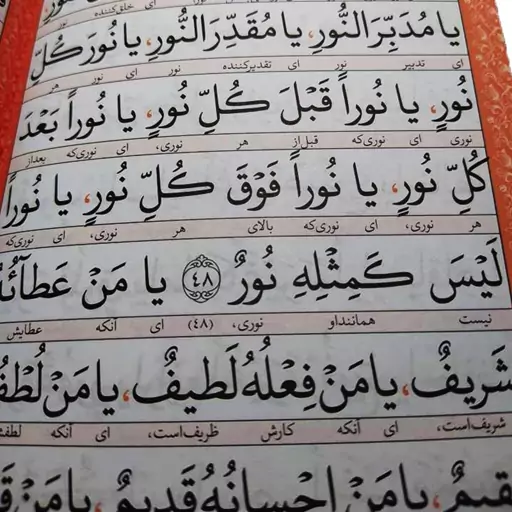 نور خلق‌کننده
يا مُدَبِّرَ النُّورِ، يا مُقَدِّرَ النُّورِ، يا نُورَ كُلِّ
ای تدبیر نور ای تقدیرکننده نور ای نور هر
نُورٍ، يا نُوراً قَبْلَ كُلِّ نُورٍ، يا نُوراً بَعْدَ
نوری ای نوری‌که قبل‌از هر نوری، ای نوری‌که بعداز
كُلِّ نُورٍ، يا نُوراً فَوْقَ كُلِّ نُورٍ، يا نُوراً
هر نوری، ای نوری‌که بالای هر نوری، ای نوری‌که
لَيْسَ كَمِثْلِهِ نُورٌ ﴿٤٨﴾ يا مَنْ عَطآئُهُ
نیست همانند او نوری، (٤٨) ای آنکه عطایش
شَريفٌ، يا مَنْ فِعْلُهُ لَطيفٌ، يا مَنْ لُطْفُ
شریف‌است، ای آنکه کارش ظریف‌است، ای آنکه لطفش
يا مَنْ اِحْسانُهُ قَديمٌ، يا مَنْ